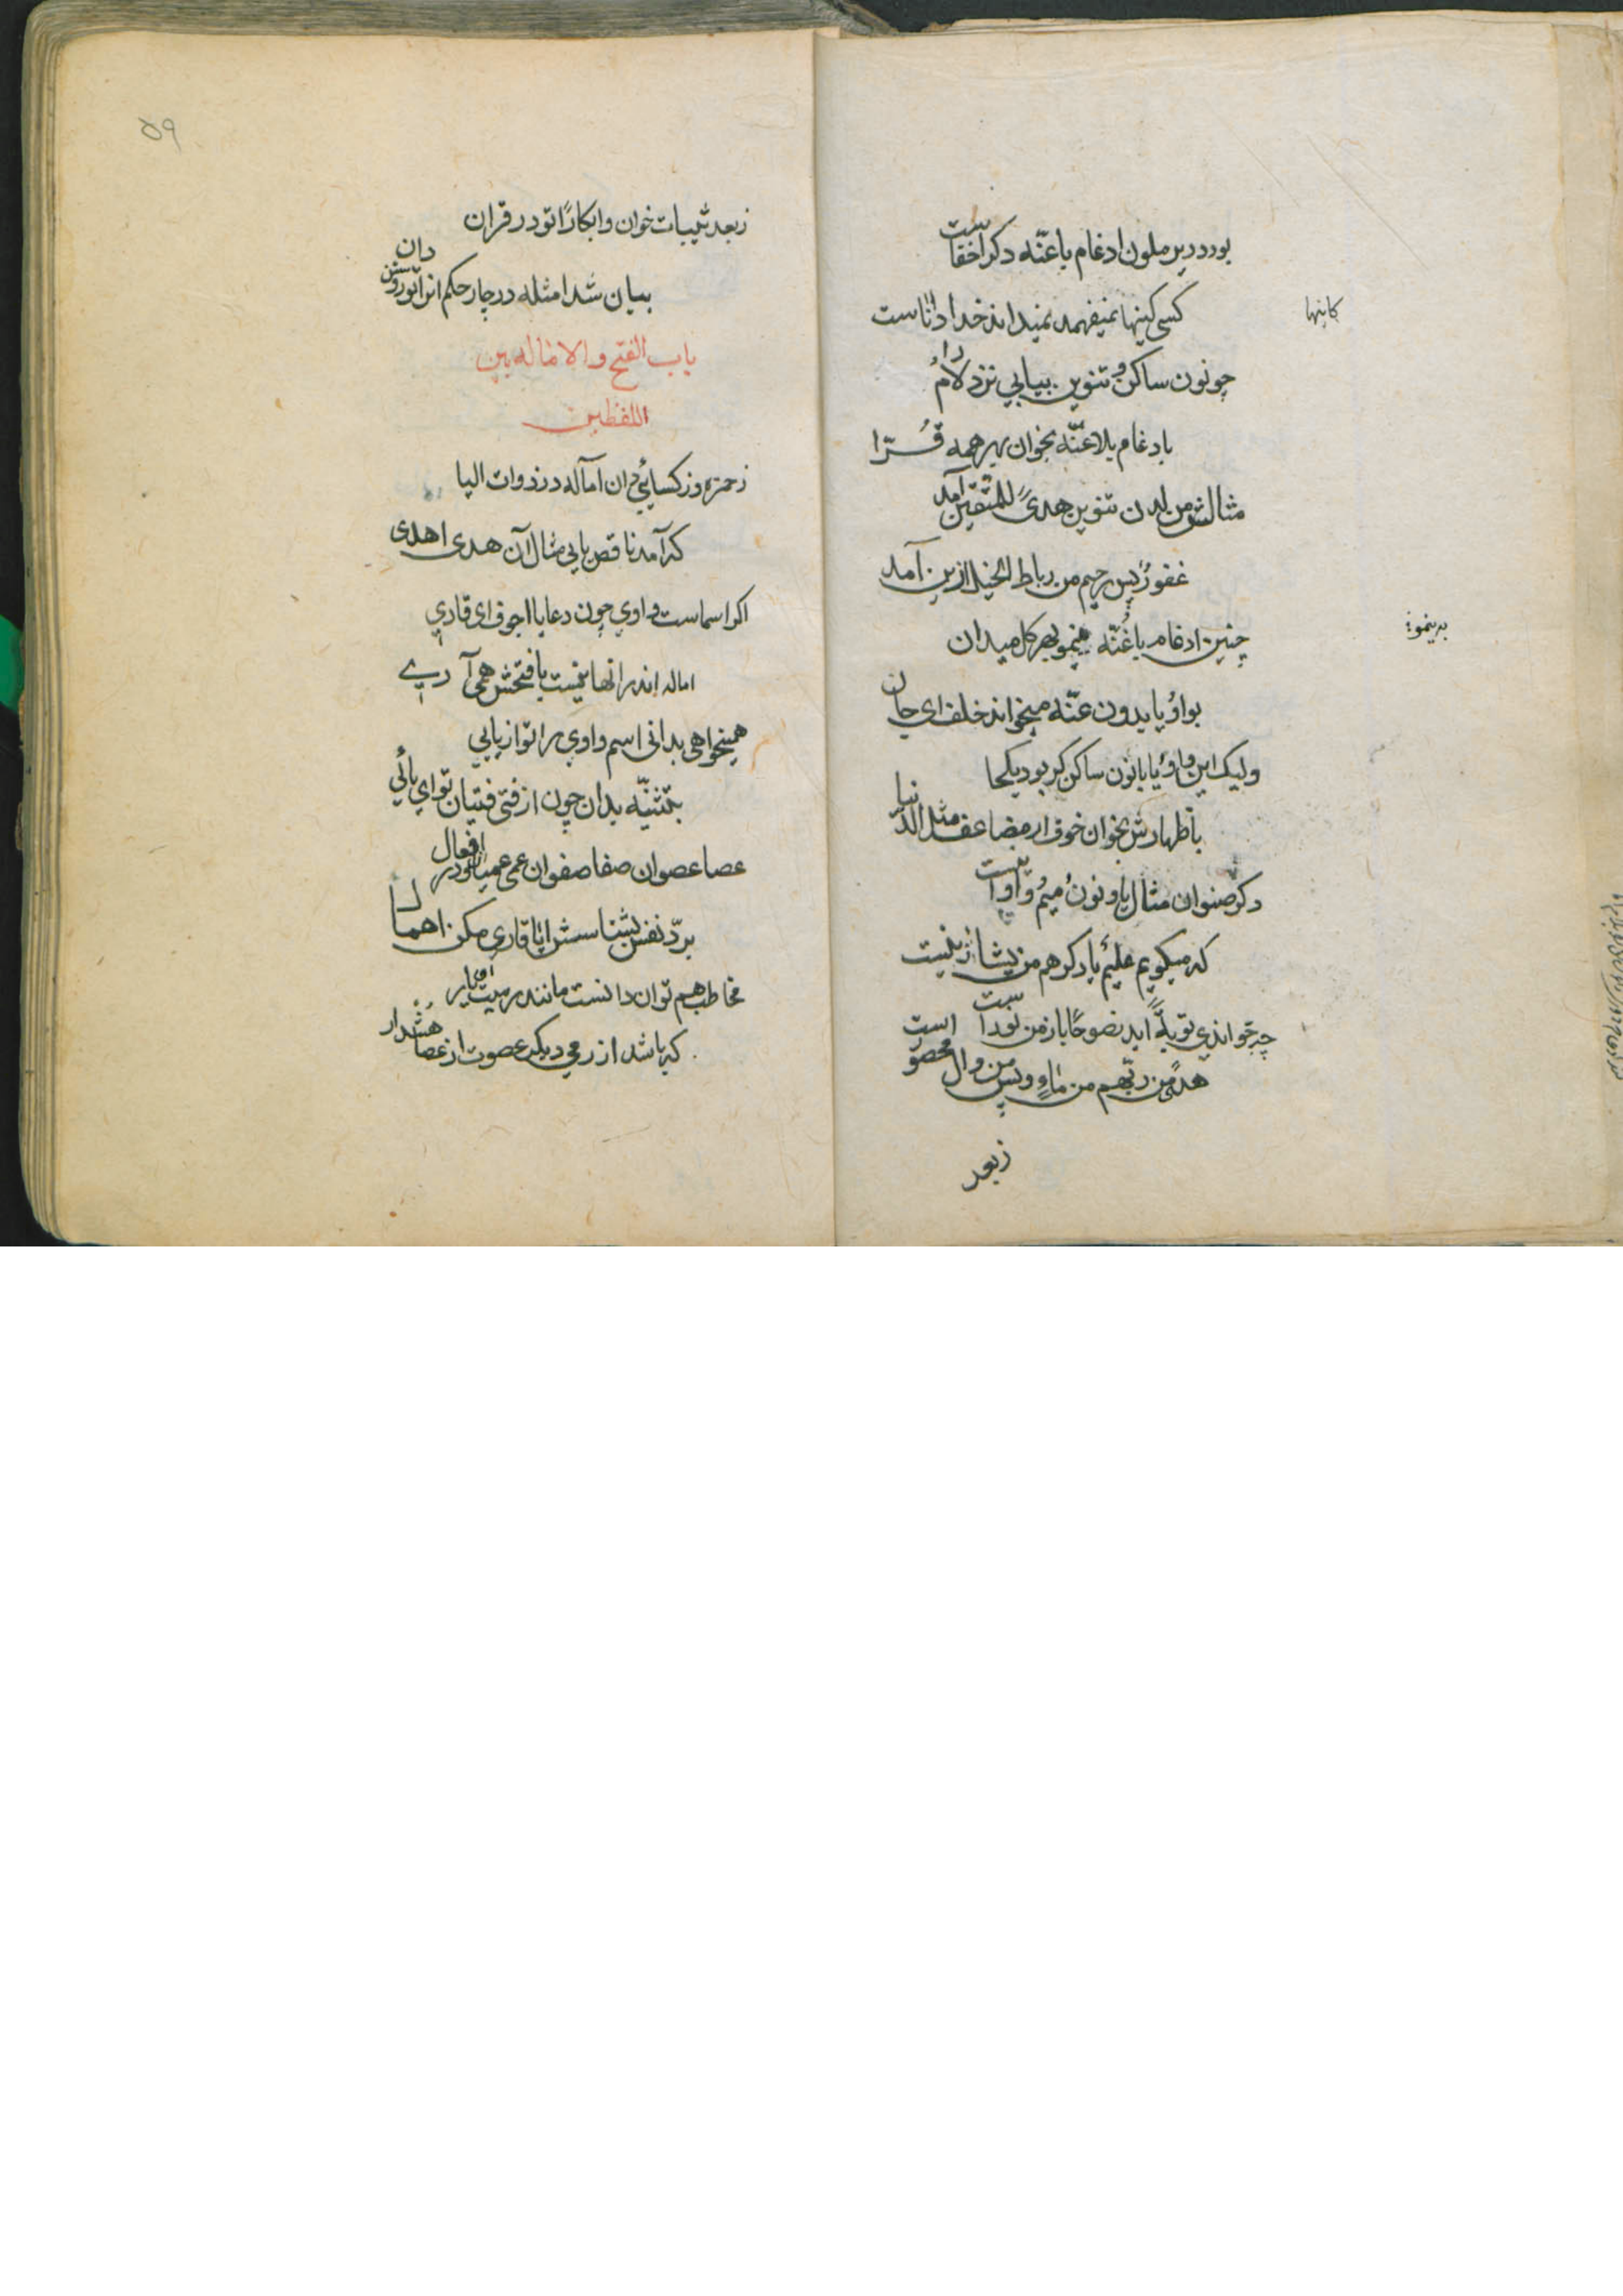 بود در یرملون ادغام باغنّه دکر اخفاست
کسی کینها نمیفهمد نمیداند خدا داناست
کاینها
چو نون ساکن و تنوین بیابی نزد لام را
بادغام بلاغنّه بخوان بهر همه قُرّا
مثالش من لدن تنوین هدیً للمتقین آمد
غفورٌ پس رحیم من رباط الخیل ازین آمد
چنین ادغام باغُنّه بینمو بهر کل میدان
بدینمو
بواوُ یا بدون غنّه میخواند خلف ای جان
ولیک این واوُ یا با نون ساکن کر بود یکجا
باظهارش بخوان خوف از مضاعف مثل الدنیا
دکر صنوان مثال یاو نونُ میمُ واواست
که میکویم علیمٌ یاد کر هم من یشا زینست
چه خواندی توبةً اید نصوحًا باز من نور است
هدًی من ربّهم من ماءٍ و پس من وال محصور است
زبعد
۵۹
زبعد ثیبات خوان و ابکارًا تو در قران
بیان شد امثله در چار حکم انرا تو روشن دان
باب الفتح والاماله بین
اللفظین
زحمزه وز کسائی دان اماله در ذوات الیا
که آمد ناقص یایی مثال آن هدی اهدی
اکر اسماست واوی چون دعا یا اجوف ای قاری
اماله اندر انها نیست بافتحش همی آری
همیخواهی بدانی اسم واوی را تو از یایی
بتثنیّه بدان چون از فتی فتیان تو ای یائی
عصا عصوان صفا صفوان عمی عمیان و در افعال
بردّ نفس بشناسش ایا قاری مکن اهمال
مخاطب هم توان دانست مانند رمیت ای یار
که باشد از رمی دیکر عصوت از عصا هُشدار